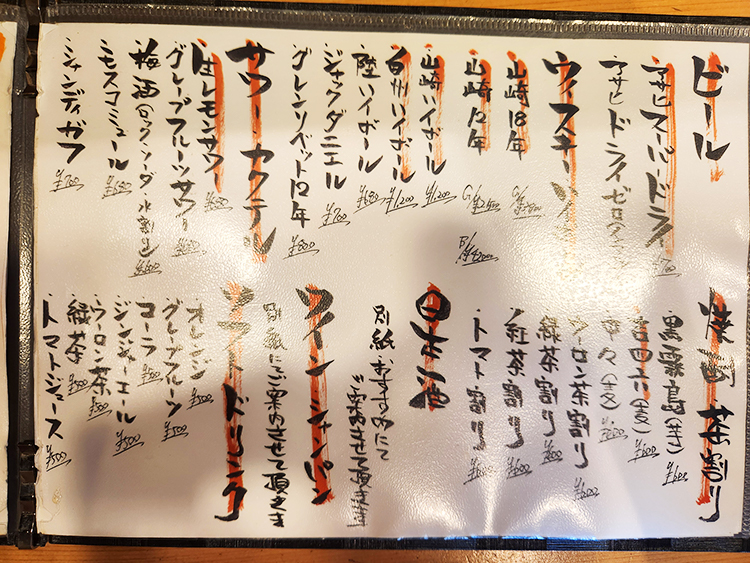 ビール
アサヒスーパードライ ¥700
アサヒドライゼロ
ウィスキー
山崎18年
山崎12年 G/¥2,500
山崎ハイボール ¥1,200
白州ハイボール ¥1,200
陸ハイボール ¥650
ジャックダニエル ¥700
グレンリベット12年 ¥800
サワー・カクテル
生レモンサワー ¥650
グレープフルーツサワー ¥650
梅酒(ロック・ソーダ・水割り) ¥600
モスコミュール ¥650
シャンディガフ ¥700
焼酎 茶割り
黒霧島(芋) ¥600
吉四六(麦) ¥600
(麦) ¥600
ウーロン茶割り ¥600
緑茶割り ¥600
紅茶割り ¥600
トマト割り ¥600
日本酒
別紙おすすめにて
ご案内させて頂きます
ワイン シャンパン
別紙にご案内させて頂きます
ソフトドリンク
オレンジ ¥500
グレープフルーツ ¥500
コーラ ¥500
ジンジャーエール ¥500
ウーロン茶 ¥500
緑茶 ¥500
トマトジュース ¥500